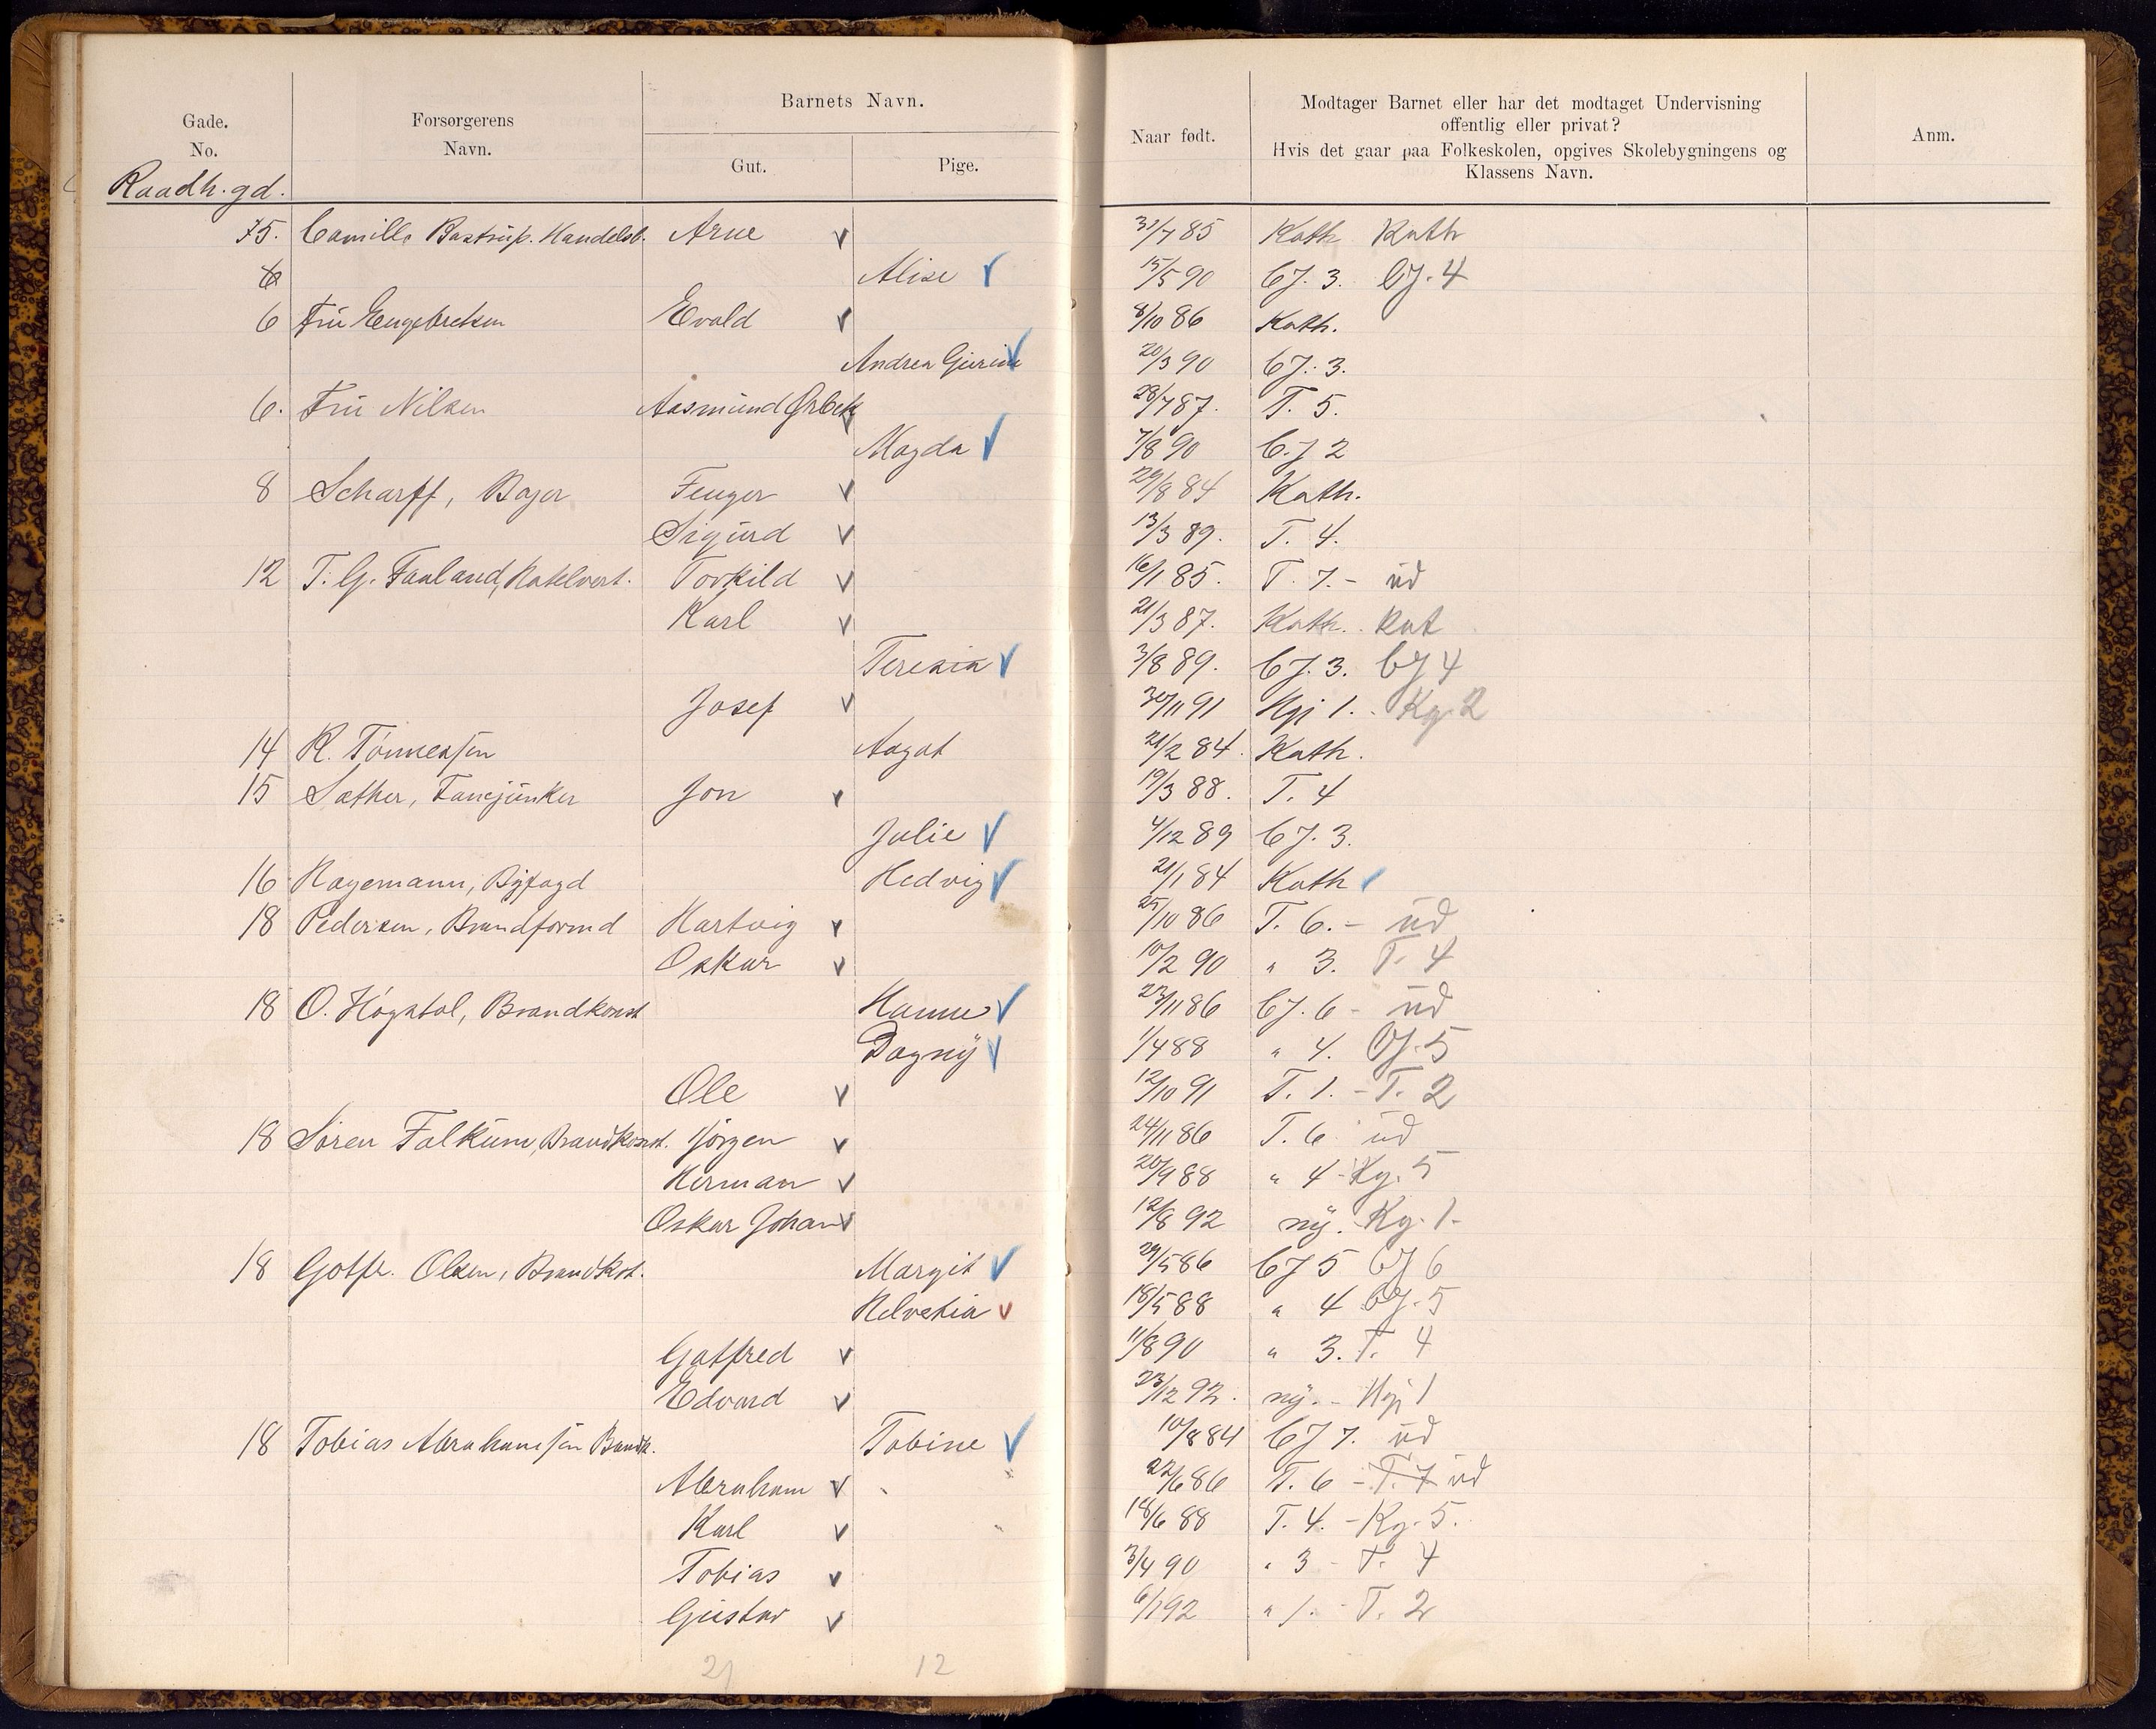 Gade. No. Forsørgerens Navn. Barnets Navn. Gut. Pige. Naar født. Modtager Barnet eller har det modtaget Undervisning offentlig eller privat? Hvis det gaar paa Folkeskolen, opgives Skolebygningens og Klassens Navn. Anm.
Raadh. gd.
75. Camilla Bastrup. Handelsb. Arne v 31/7 85 Kath Kath
6 Alise v 15/5 90 Cj. 3. Cj. 4
6 Fru Engebretsen Evald v 8/10 86 Kath.
Andrea v 20/3 90 Cj. 3.
6. Fru Nilsen Aasmund v 28/7 87. T. 5.
Magda v 7/8 90 C.j 2
8 Scharff, Bager Fenger v 29/8 84 Kath.
Sigurd v 13/3 89. T. 4.
12 T. G. Fauland, Torkild v 16/1 85. T. 7. - ud
Karl v 21/3 87. Kath. Kat
Teresia v 3/8 89. Cj. 3. Cj 4
Josef v 30/11 91 Hgj 1. Kg. 2
14 K. Tönnessen Aagot 21/2 84. Kath.
15 Sæther, Fanejunker Jon v 19/3 88. T. 4
Julie v 4/12 89 Cj. 3.
16 Hagemann, Byfogd Hedvig v 21/1 84 Kath v
18 Pedersen, Brandformd Hartvig v 25/10 86 T. 6. - ud
Oskar v 10/2 90 " 3. T. 4
18 O. Høgstøl, Brandkonst Hanne v 23/11 86 Cj. 6 - ud
Dagny v 1/4 88 " 4. Cj. 5
Ole v 12/10 91 T. 1. - T. 2
18 Søren Falkum, Brandkonst. Jörgen v 24/11 86 T. 6 ud
Herman v 20/9 88 " 4 - Kg. 5
Oskar Johan v 12/8 92 ny. Kg. 1.
18 Gotfr. Olsen, Brandkst. Margit v 29/5 86 Cj 5 Cj 6
Helvetia v 18/5 88 " 4 Cj. 5
Gotfred v 11/8 90 " 3. T. 4
Edvard v 23/12 92. ny. - Hgj 1
18 Tobias Abrahamsen Brandk. Tobine v 10/8 84 Cj 7. ud
Abraham v 22/6 86 T. 6 - T. 7 ud
Karl v 18/6 88 T. 4. - Kg. 5.
Tobias v 3/4 90 " 3 - T. 4
Gustav v 6/1 92 " 1. - T. 2
21 12